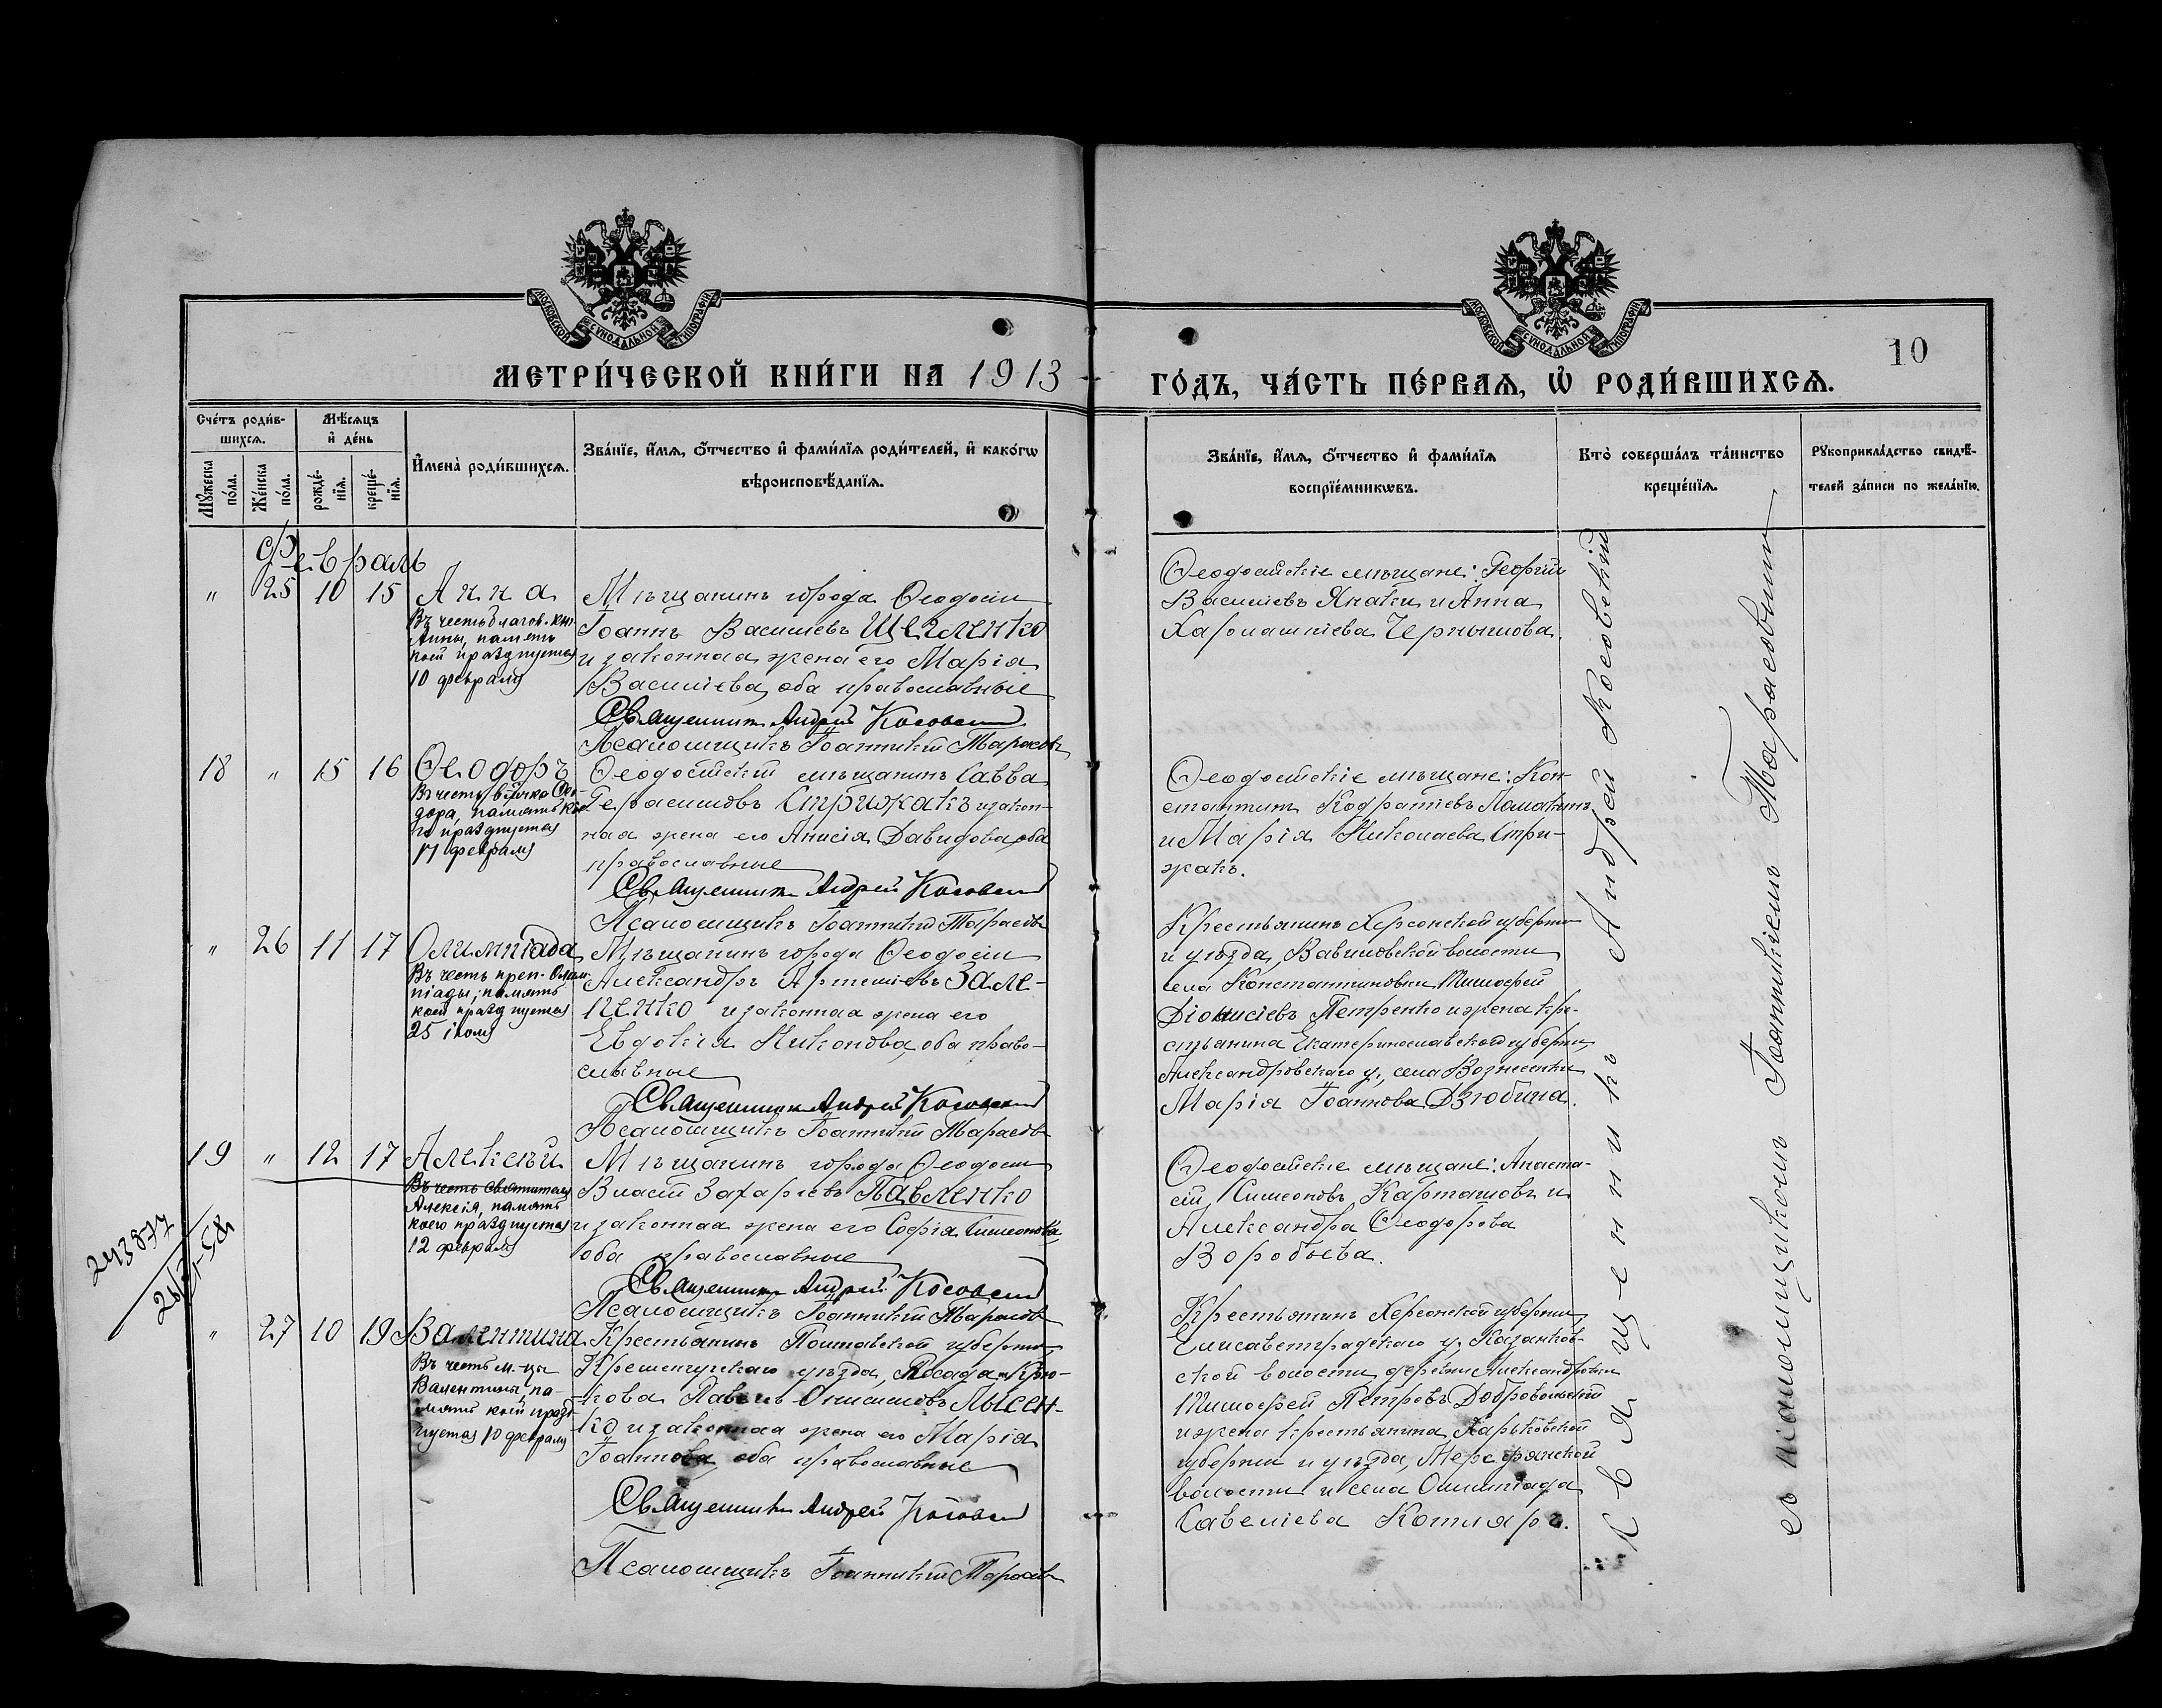 МОСКОВСКОЙ СУНОДАЛЬНОЙ ТИПОГРАФІИ
МОСКОВСКОЙ СУНОДАЛЬНОЙ ТИПОГРАФІИ
10
МЕТРИ́ЧЕСКОЙ КНИ́ГИ НА 1913
ГО́ДЪ, ЧА́СТЬ ПЕ́РВАѦ, Ѡ҆ РОДИ́ВШИХСѦ.
Сче́тъ роди́в-
шихсѧ.
Мѣ́сѧцъ
и҆ де́нь
Мꙋ́жеска
по́ла.
Же́нска
по́ла.
рожде́-
нїѧ.
креще́-
нїѧ.
И҆мена̀ роди́вшихсѧ.
Зва́нїе, и҆́мѧ, ѻ҆́тчество и҆ фами́лїѧ роди́телей, и҆ како́гѡ
вѣроисповѣ́данїѧ.
Зва́нїе, и҆́мѧ, ѻ҆́тчество и҆ фами́лїѧ
воспрїе́мникѡвъ.
Кто̀ соверша́лъ та́инство
креще́нїѧ.
Рꙋкоприкла́дство свидѣ́-
телей за́писи по жела́нїю.
Февраль
" 25 10 15 Анна
Въ честь благов. кн.
Анны, память
коей празднуется
10 февраля
Мѣщанинъ города Ѳеодосіи
Іоаннъ Васильевъ Щегленко
и законная жена его Марія
Васильева, оба православные
Священникъ Андрей Косовскій
Псаломщикъ Іоанникій Тарасевъ
Ѳеодосійскіе мѣщане: Георгій
Васильевъ Янаки и Анна
Харлампіева Чернышова.
18 " 15 16 Ѳеодоръ
Въ честь в. мучка Ѳео-
дора, память ко-
го празднуется
17 февраля
Ѳеодосійскій мѣщанинъ Савва
Герасимовъ Стрижакъ и закон-
ная жена его Анисія Давидова, оба
православные
Священникъ Андрей Косовскій
Псаломщикъ Іоанникій Тарасевъ
Ѳеодосійскіе мѣщане: Кон-
стантинъ Кодратьевъ Ломакинъ
и Марія Николаева Стри-
жакъ.
" 26 11 17 Олимпіада
Въ честь преп. Олим-
піады, память
коей празднуется
25 іюля
Мѣщанинъ города Ѳеодосіи
Александръ Артемьевъ Зале-
пенко и законная жена его
Евдокія Никонова, оба право-
славные
Священникъ Андрей Косовскій
Псаломщикъ Іоанникій Тарасевъ
Крестьянинъ Херсонской губерніи
и уѣзда, Вавиловской волости
села Константиновки Тимофей
Діонисіевъ Петренко и жена кре-
стьянина Екатеринославской губерніи,
Александровскаго у., села Вознесенки
Марія Іоаннова Дзюбина.
19 " 12 17 Алексѣй
Въ честь святителя
Алексія, память
коего празднуется
12 февраля
Мѣщанинъ города Ѳеодосіи
Власій Захаріевъ Павленко
и законная жена его Софія Симеонова,
оба православные
Священникъ Андрей Косовскій
Псаломщикъ Іоанникій Тарасевъ
Ѳеодосійскіе мѣщане: Анаста-
сій Симеоновъ Карташовъ и
Александра Ѳеодорова
Воробьева.
" 27 10 19 Валентина
Въ честь м-цы
Валентины, па-
мять коей празд-
нуется 10 февраля
Крестьянинъ Полтавской губерніи,
Кременчугскаго уѣзда, Посада Крю-
кова Павелъ Онисимовъ Лысен-
ко и законная жена его Марія
Іоаннова, оба православные
Священникъ Андрей Косовскій
Псаломщикъ Іоанникій Тарасевъ
Крестьянинъ Херсонской губерніи,
Елисаветградскаго у., Казанков-
ской волости деревни Александровки
Тимофей Петровъ Добровольскій
и жена крестьянина Харьковской
губерніи и уѣзда, Мерефянской
волости и села Олимпіада
Савельева Котляръ.
Священникъ Андрей Косовскій
съ псаломщикомъ Іоанникіемъ Тарасевымъ